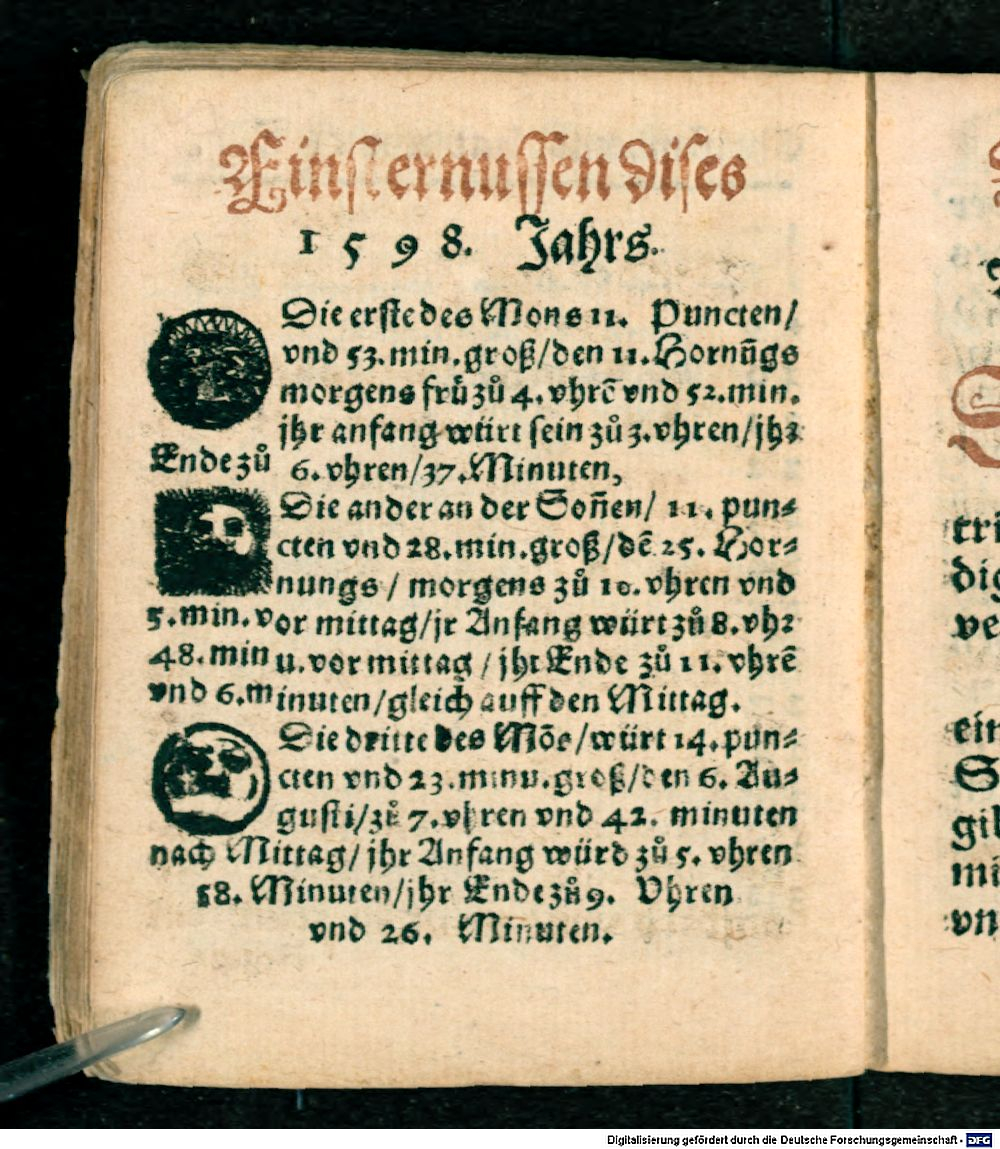 Finsternussen dises
1598. Jahrs.
Die erste des Mons 11. Puncten/
vnd 53. min. groß/den 11. Hornūgs
morgens frů zů 4. vhrē vnd 52. min.
jhr anfang würt sein zů 3. vhren/jhr
Ende zů 6. vhren/37. Minuten,
Die ander an der Soñen/ 11. pun-
cten vnd 28. min. groß/dē 25. Hor-
nungs/ morgens zů 10. vhren vnd
5. min. vor mittag/jr Anfang würt zů 8. vhr
48. minu. vor mittag/ jhr Ende zů 11. vhrē
vnd 6. minuten/gleich auff den Mittag.
Die dritte des Mōs/würt 14. pun-
cten vnd 23. minu. groß/den 6. Au-
gusti/zů 7. vhren vnd 42. minuten
nach Mittag/ jhr Anfang würd zů 5. vhren
58. Minuten/jhr Ende zů 9. Vhren
vnd 26. Minuten.
eri
dig
ve
ein
S
gil
mi
vn
Digitalisierung gefördert durch die Deutsche Forschungsgemeinschaft - DFG